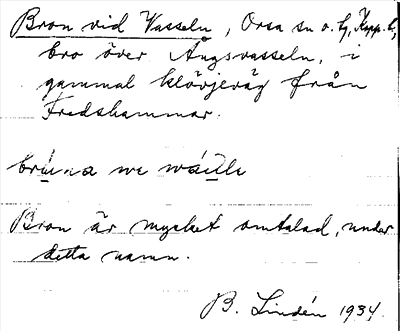 Bron vid Vasseln, Orsa sn o. hg, Kopp. l.,
bro över Ångsvasseln, i
gammal klövjeväg från
Fredshammar.
we
Bron är mycket omtalad, under
detta namn.
B. Lindén 1934.